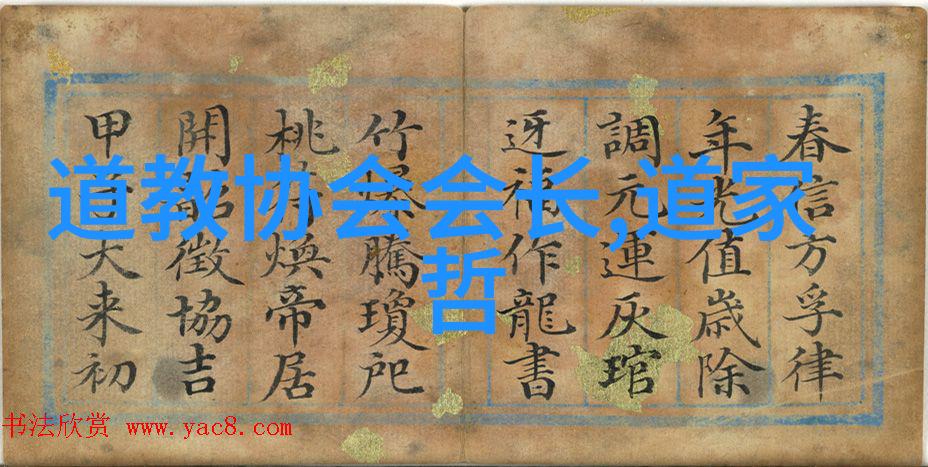 道教协会会长,道家
哲
春信方孚律
年光值歲除
調元連灰琯
迓福作龍書
竹爆騰瓊戺
桃符煥帝居
開韶徵協吉
甲大来初
书法欣赏 www.yac8.com